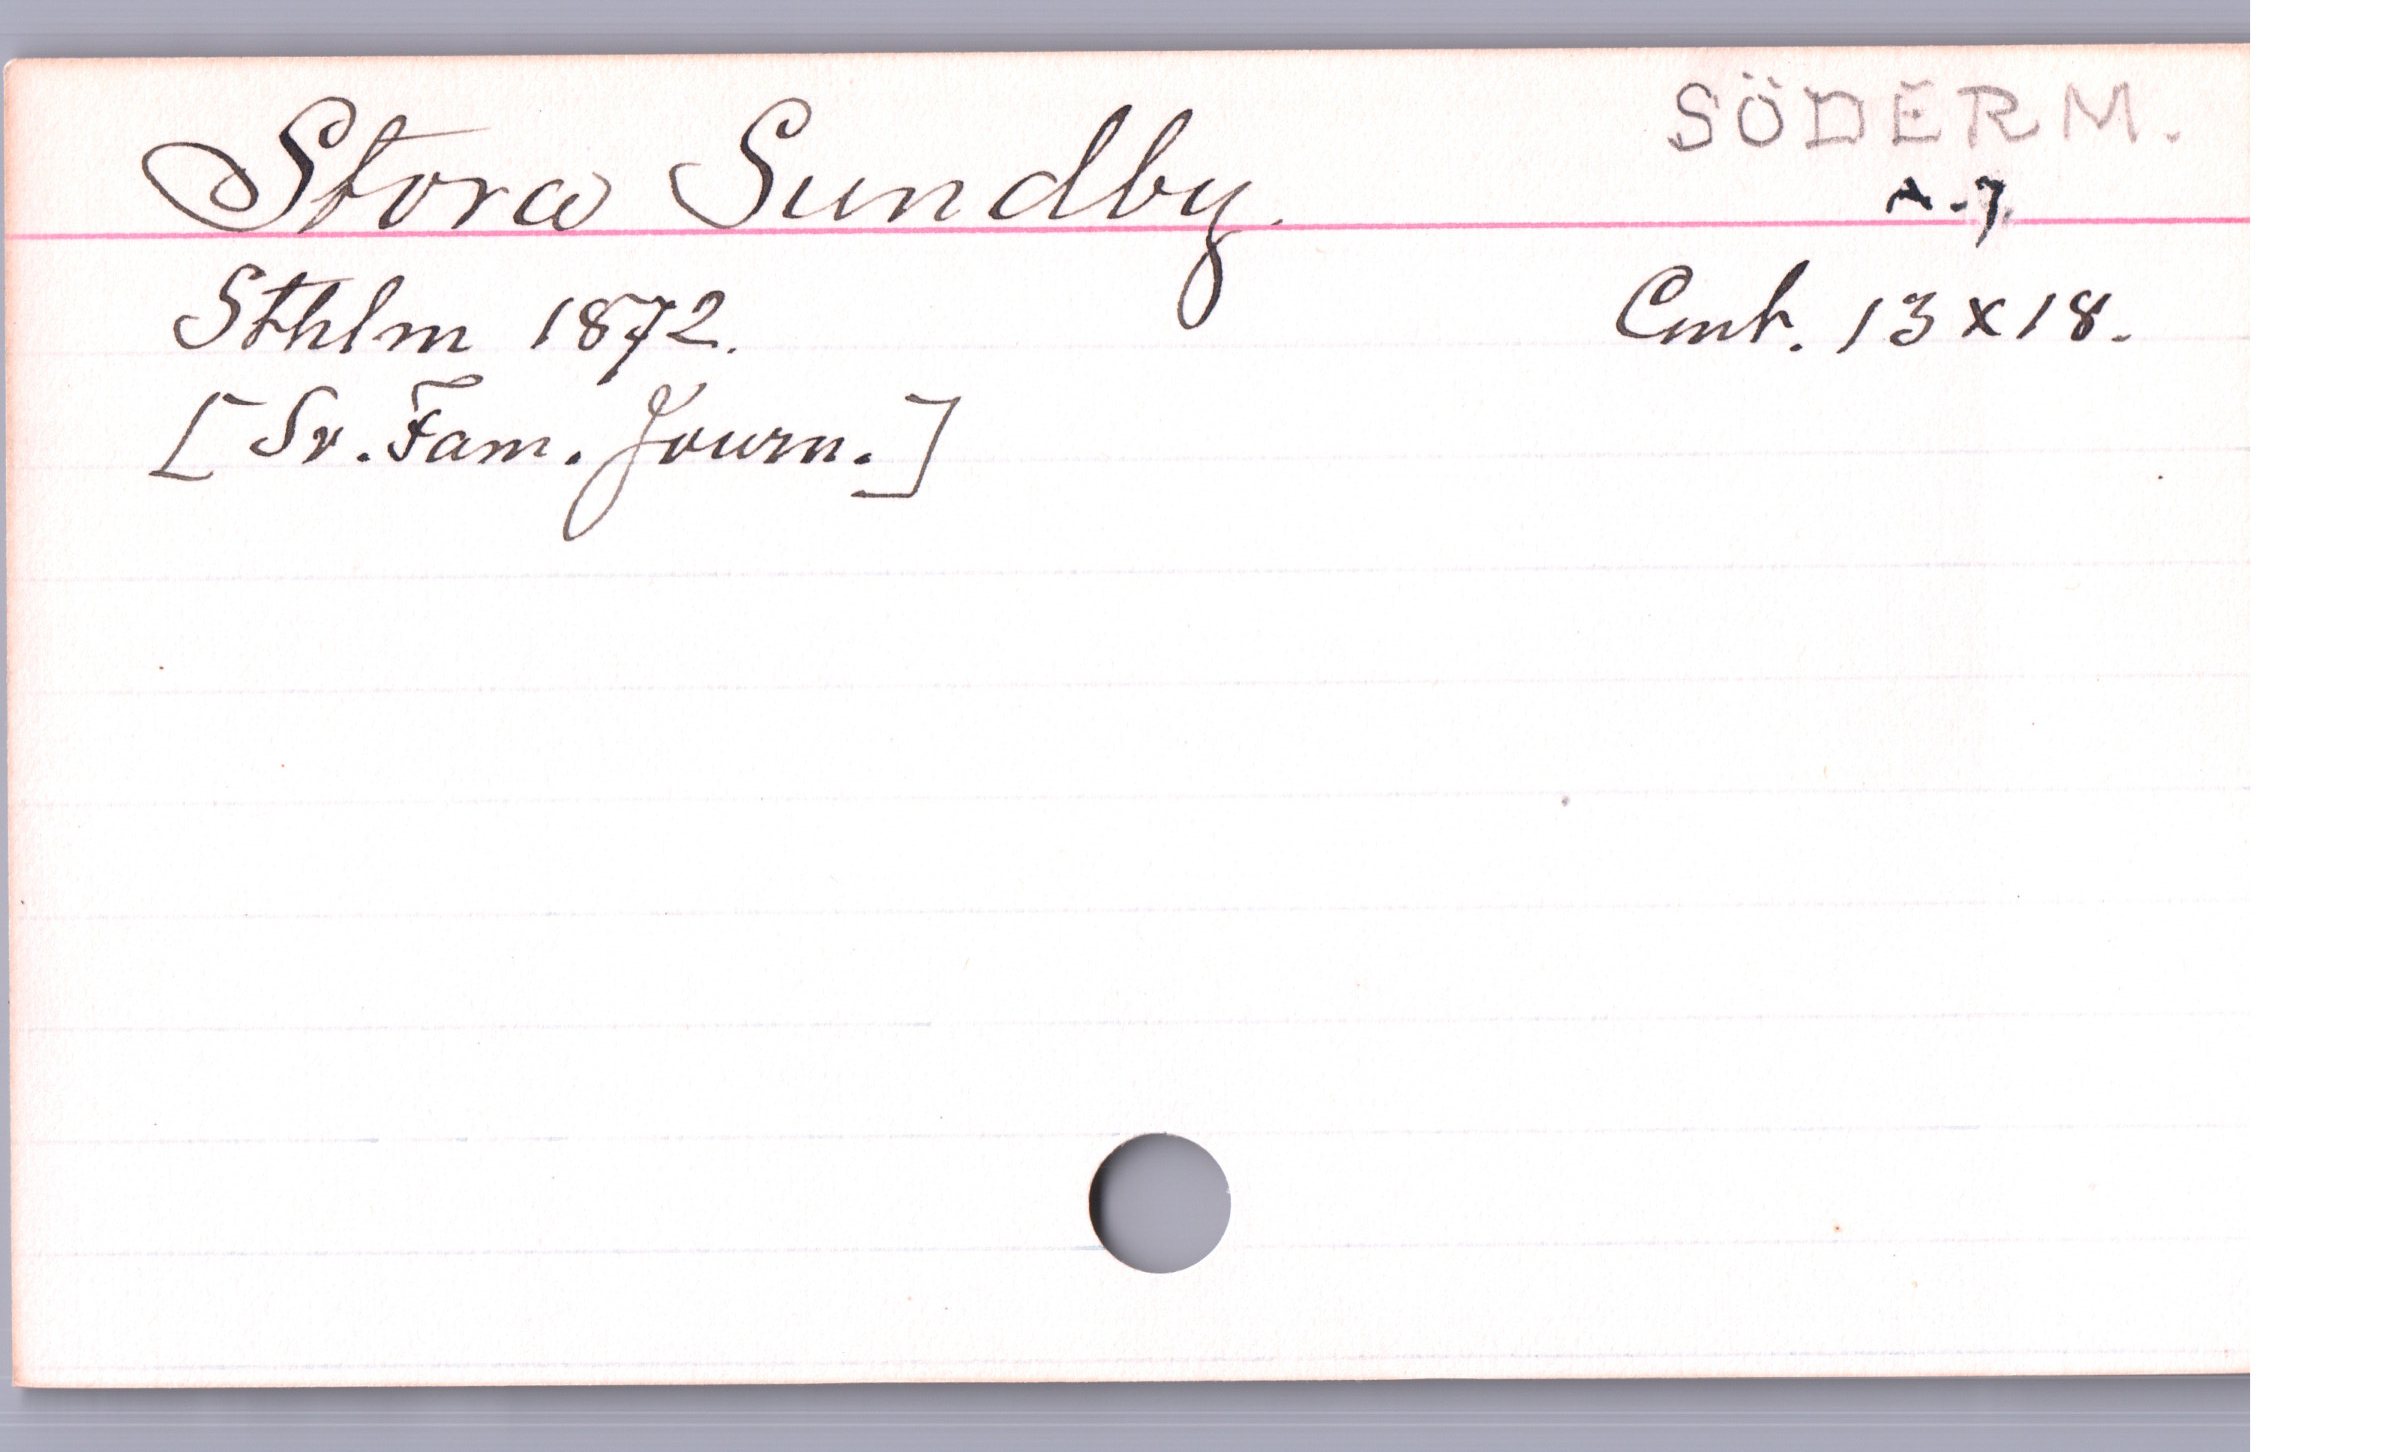 Stora Sundby.
SÖDERM.
A.7.
Sthlm 1872.
Cmt. 13 x 18.
[Sv. Fam. Journ.]